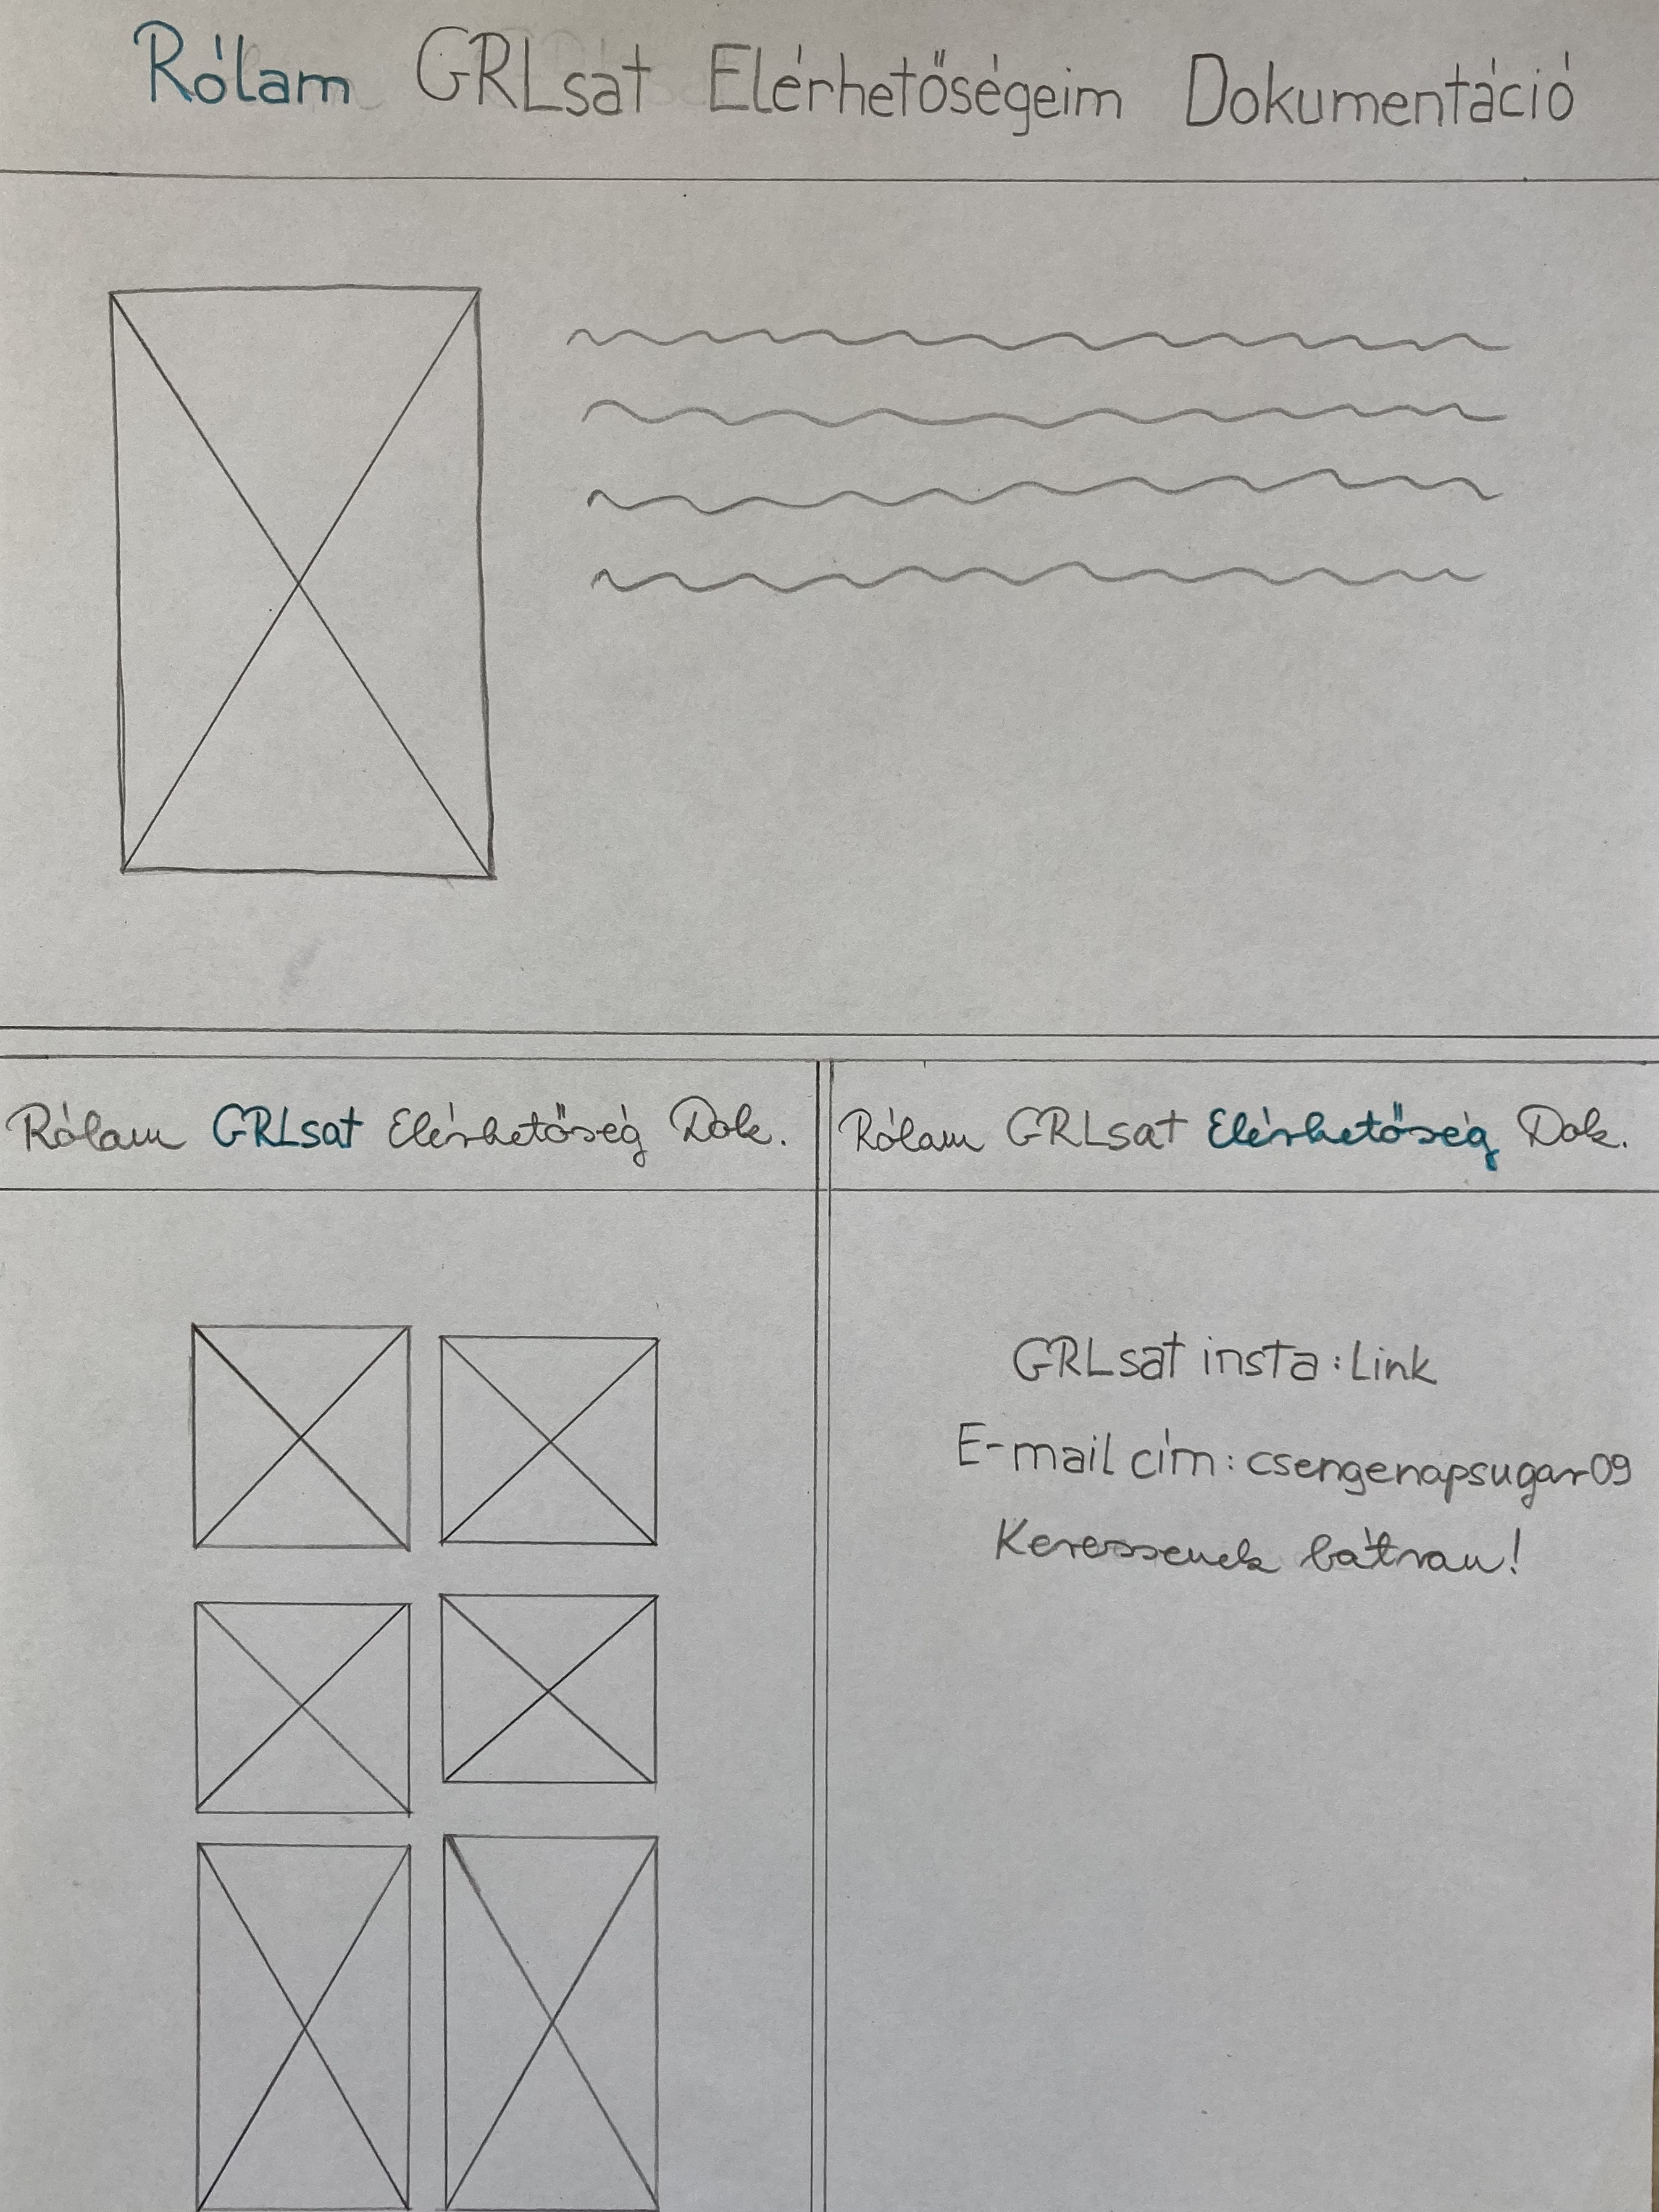 Rólam GRLsat Elérhetőségeim Dokumentáció
Rólam GRLsat Elérhetőség Dok.
Rólam GRLsat Elérhetőség Dok.
GRLsat insta: Link
E-mail cím: csengenapsugar09
Keressenek bátran!